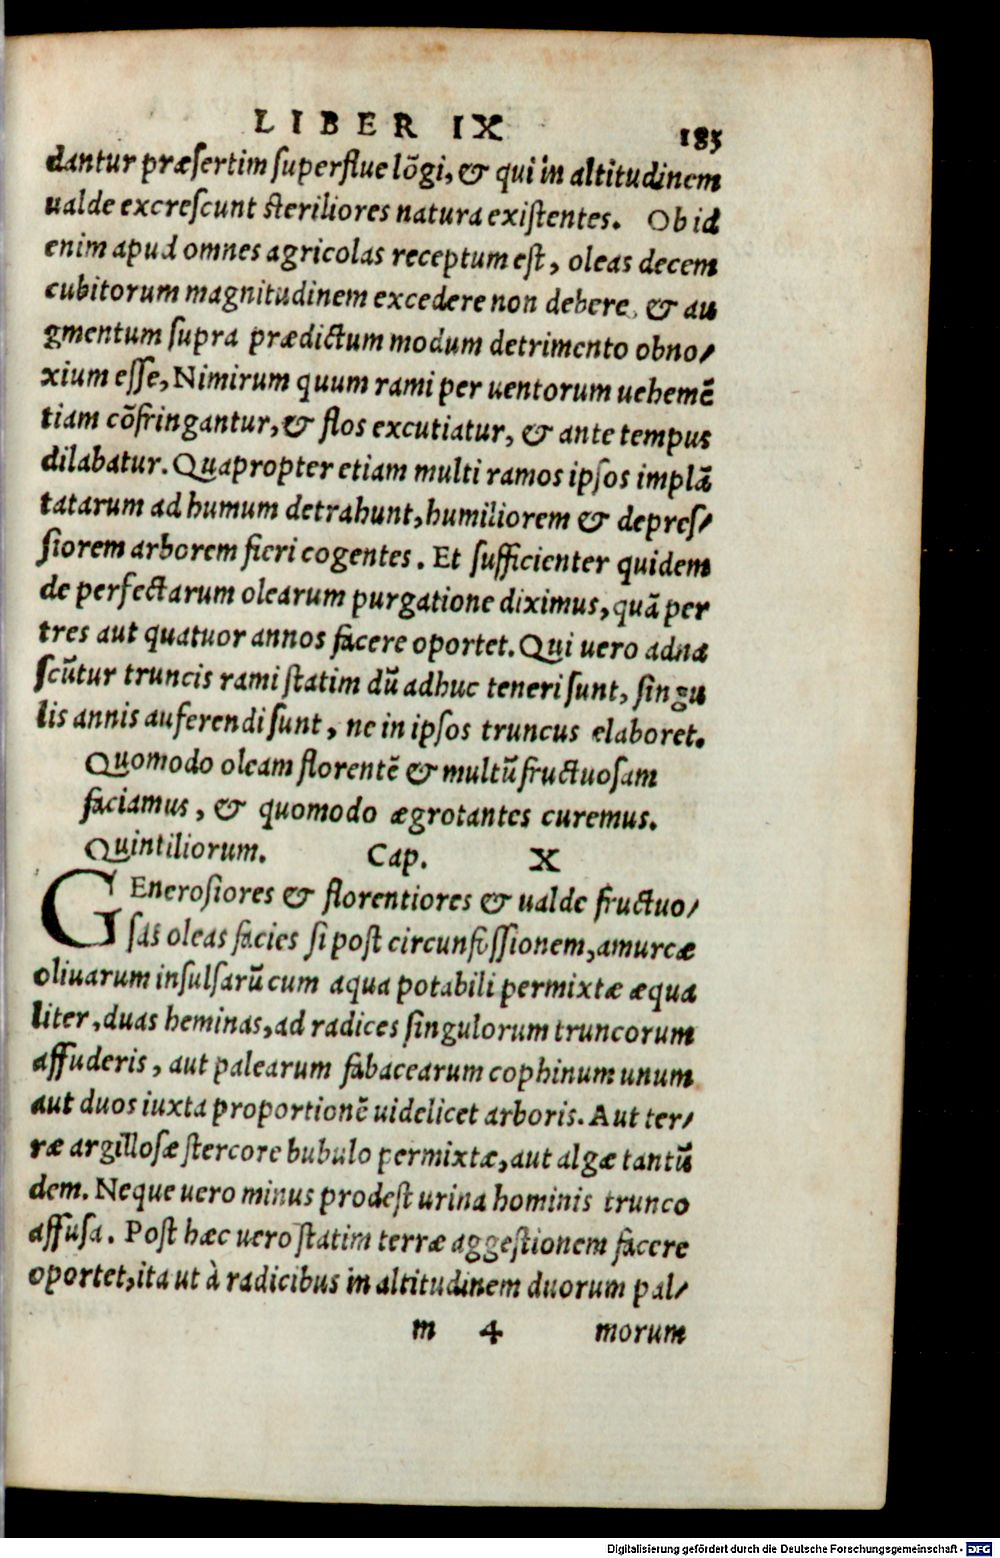 LIBER IX 185
dantur præsertim superflue lõgi, & qui in altitudinem
ualde excrescunt steriliores natura existentes. Ob id
enim apud omnes agricolas receptum est, oleas decem
cubitorum magnitudinem excedere non debere, & au
gmentum supra prædictum modum detrimento obno/
xium esse, Nimirum quum rami per uentorum uehemẽ
tiam cõfringantur, & flos excutiatur, & ante tempus
dilabatur. Quapropter etiam multi ramos ipsos implã
tatarum ad humum detrahunt, humiliorem & depres/
siorem arborem fieri cogentes. Et sufficienter quidem
de perfectarum olearum purgatione diximus, quã per
tres aut quatuor annos facere oportet. Qui uero adna
scũtur truncis rami statim dũ adhuc teneri sunt, singu
lis annis auferendi sunt, ne in ipsos truncus elaboret.
Quomodo oleam florentẽ & multũ fructuosam
faciamus, & quomodo ægrotantes curemus.
Quintiliorum. Cap. X
GEnerosiores & florentiores & ualde fructuo/
sas oleas facies si post circunfossionem, amurcæ
oliuarum insulsarũ cum aqua potabili permixtæ æqua
liter, duas heminas, ad radices singulorum truncorum
affuderis, aut palearum fabacearum cophinum unum
aut duos iuxta proportionẽ uidelicet arboris. Aut ter/
ræ argillosæ stercore bubulo permixtæ, aut algæ tantũ
dem. Neque uero minus prodest urina hominis trunco
affusa. Post hæc uero statim terræ aggestionem facere
oportet, ita ut à radicibus in altitudinem duorum pal/
m 4 morum
Digitalisierung gefördert durch die Deutsche Forschungsgemeinschaft - DFG